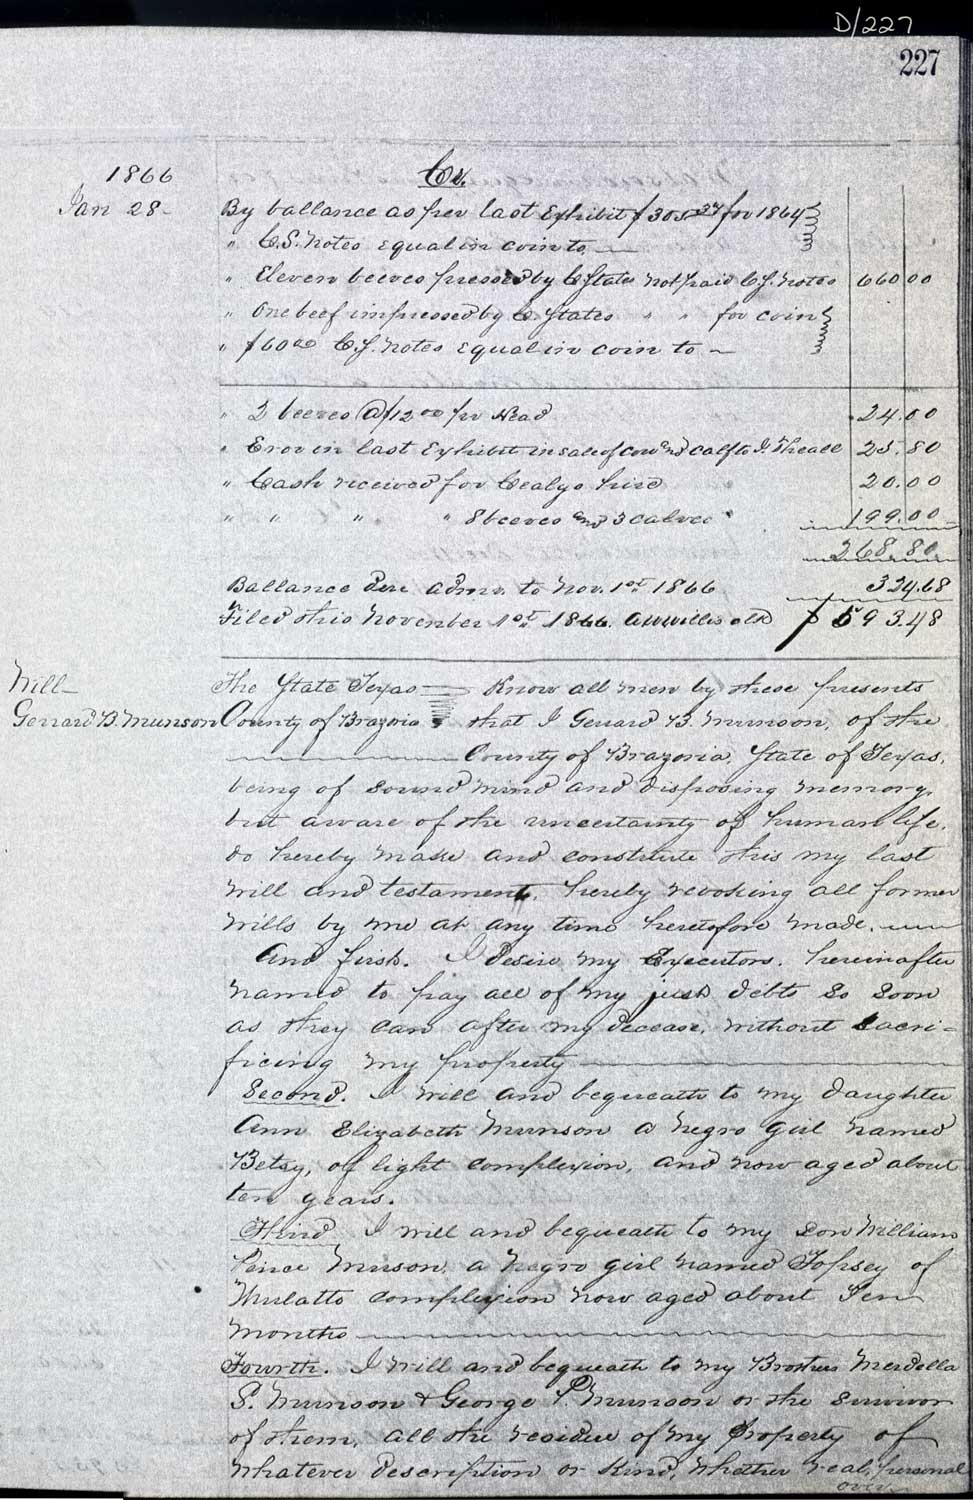 D/227
227
1866 Cr.
Jan 28- By ballance as per last Exhibit $305 37 for 1864
" C.S. Notes equal in coin to
" Eleven beeves pressed by C States not paid C.S. Notes 660 00
" One beef impressed by C. States " " for coin
" $60 00 C.S. Notes equal in coin to
" 2 beeves @ $12 00 pr Head 24.00
" Eror in last Exhibit in sale of cow and calf to J. Theall 25.80
" Cash received for Cealys hire 20.00
" " " " 8 beeves and 3 calves 199.00
268.80
Ballance due admr. to Nov. 1st 1866 324.68
Filed this November 1st 1866. AW Willis clk $593.48
Will The State Texas Know all men by these presents
Gerrard B. Munson County of Brazoria that I Gerrard B. Munson, of the
County of Brazoria, State of Texas,
being of sound mind and disposing memory,
but aware of the uncertainty of human life,
do hereby make and constitute this my last
will and testament, hereby revoking all former
wills by me at any time heretofore made.
And first. I desire my Executors, hereinafter
named to pay all of my just debts so soon
as they can after my decease, without sacri=
ficing my property
Second. I will and bequeath to my daughter
Ann Elizabeth Munson a negro girl named
Betsy, of light complexion, and now aged about
ten years.
Third I will and bequeath to my son William
Munson, a negro girl named Topsey of
Mulatto complexion now aged about Ten
months
Fourth. I will and bequeath to my Brothers Mordella
S. Munson & George P. Munson or the survivor
of them, all the residue of my Property of
whatever description or kind, whether real, personal
over